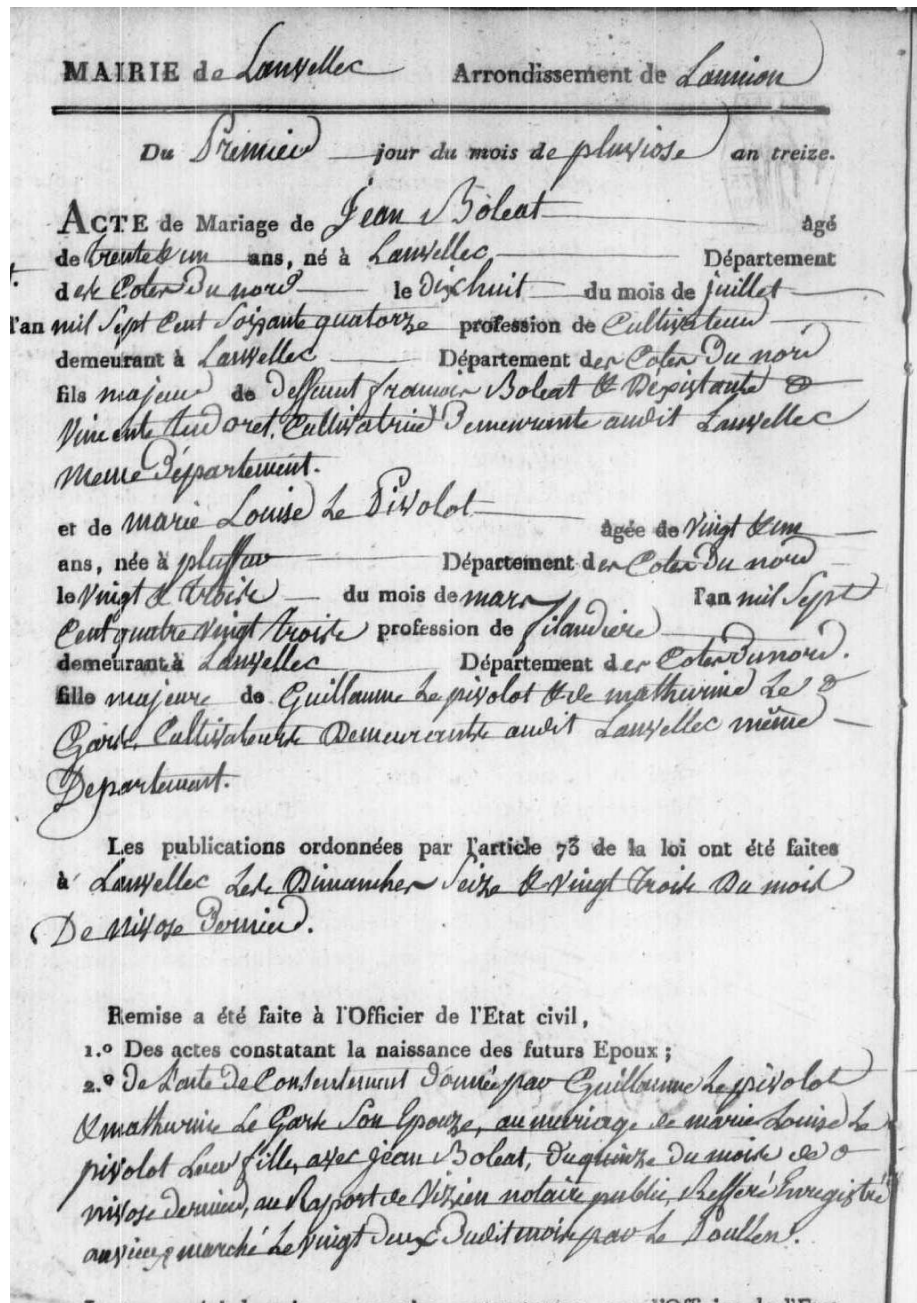 MAIRIE de Lanvellec Arrondissement de Lannion
Du Premier jour du mois de pluviose an treize.
ACTE de Mariage de Jean Boleat âgé
de trente & un ans, né à Lanvellec Département
des Cotes du nord le dix huit du mois de juillet
l'an mil Sept Cent Soixante quatorze profession de Cultivateur
demeurant à Lanvellec Département des Cotes du nord
fils majeur de deffunt francois Boleat & Dexistante
Vincente Cultivatrice Demeurante audit Lanvellec
meme Département.
et de marie Louise Le Pivolot âgée de Vingt & un
ans, née à Département des Cotes du nord
le Vingt & trois du mois de mars l'an mil Sept
Cent quatre Vingt trois profession de filandiere
demeurant à Lanvellec Département des Cotes du nord.
fille majeure de Guillaume Le pivolot & de mathurine Le
Cultivateurs Demeurants audit Lanvellec même
Département.
Les publications ordonnées par l'article 73 de la loi ont été faites
à Lanvellec Les Dimanches Seize & Vingt trois Du mois
De nivose Dernier.
Remise a été faite à l'Officier de l'Etat civil,
1.º Des actes constatant la naissance des futurs Epoux ;
2.º de L'acte de Consentement donnée par Guillaume Le pivolot
& mathurine Le Son Epouze, au mariage de marie Louise Le
pivolot Leur fille, avec jean Boleat, du quinze du mois de
nivose dernier, au Raport de notaire public, Enregistré
au vieux marché Le Vingt deux Dudit mois par Le